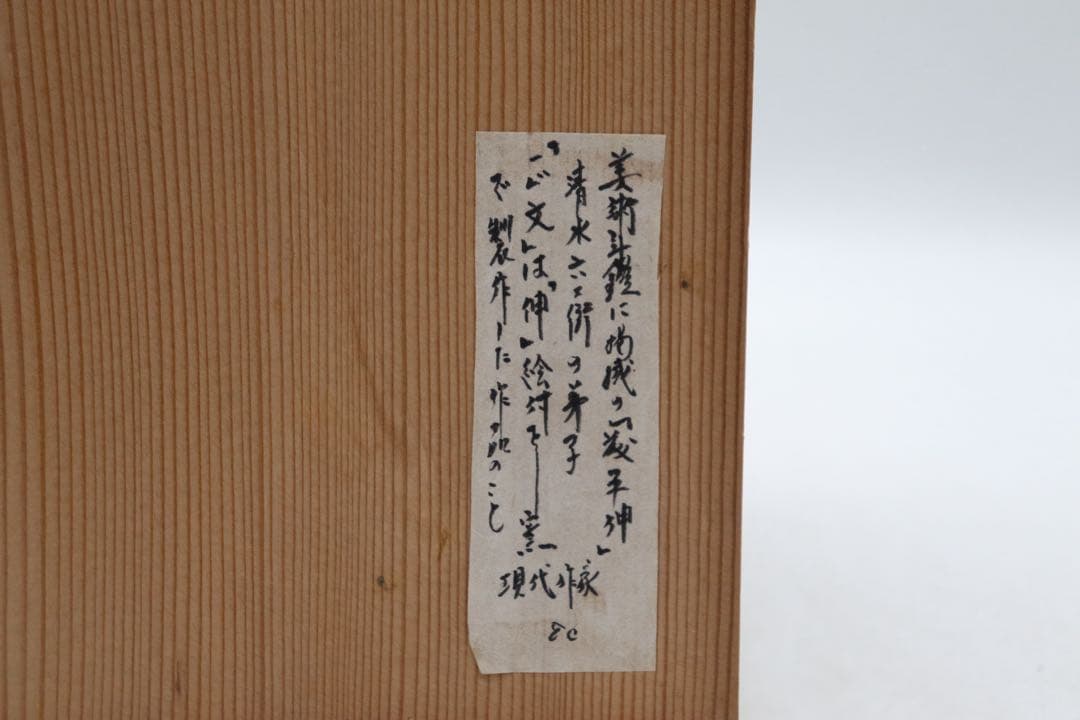 美術年鑑に掲載の「菱平伸」
清水六兵衛の弟子
文」は「伸」絵付をし 窯
で製作した作品のこと
現代作家
8c